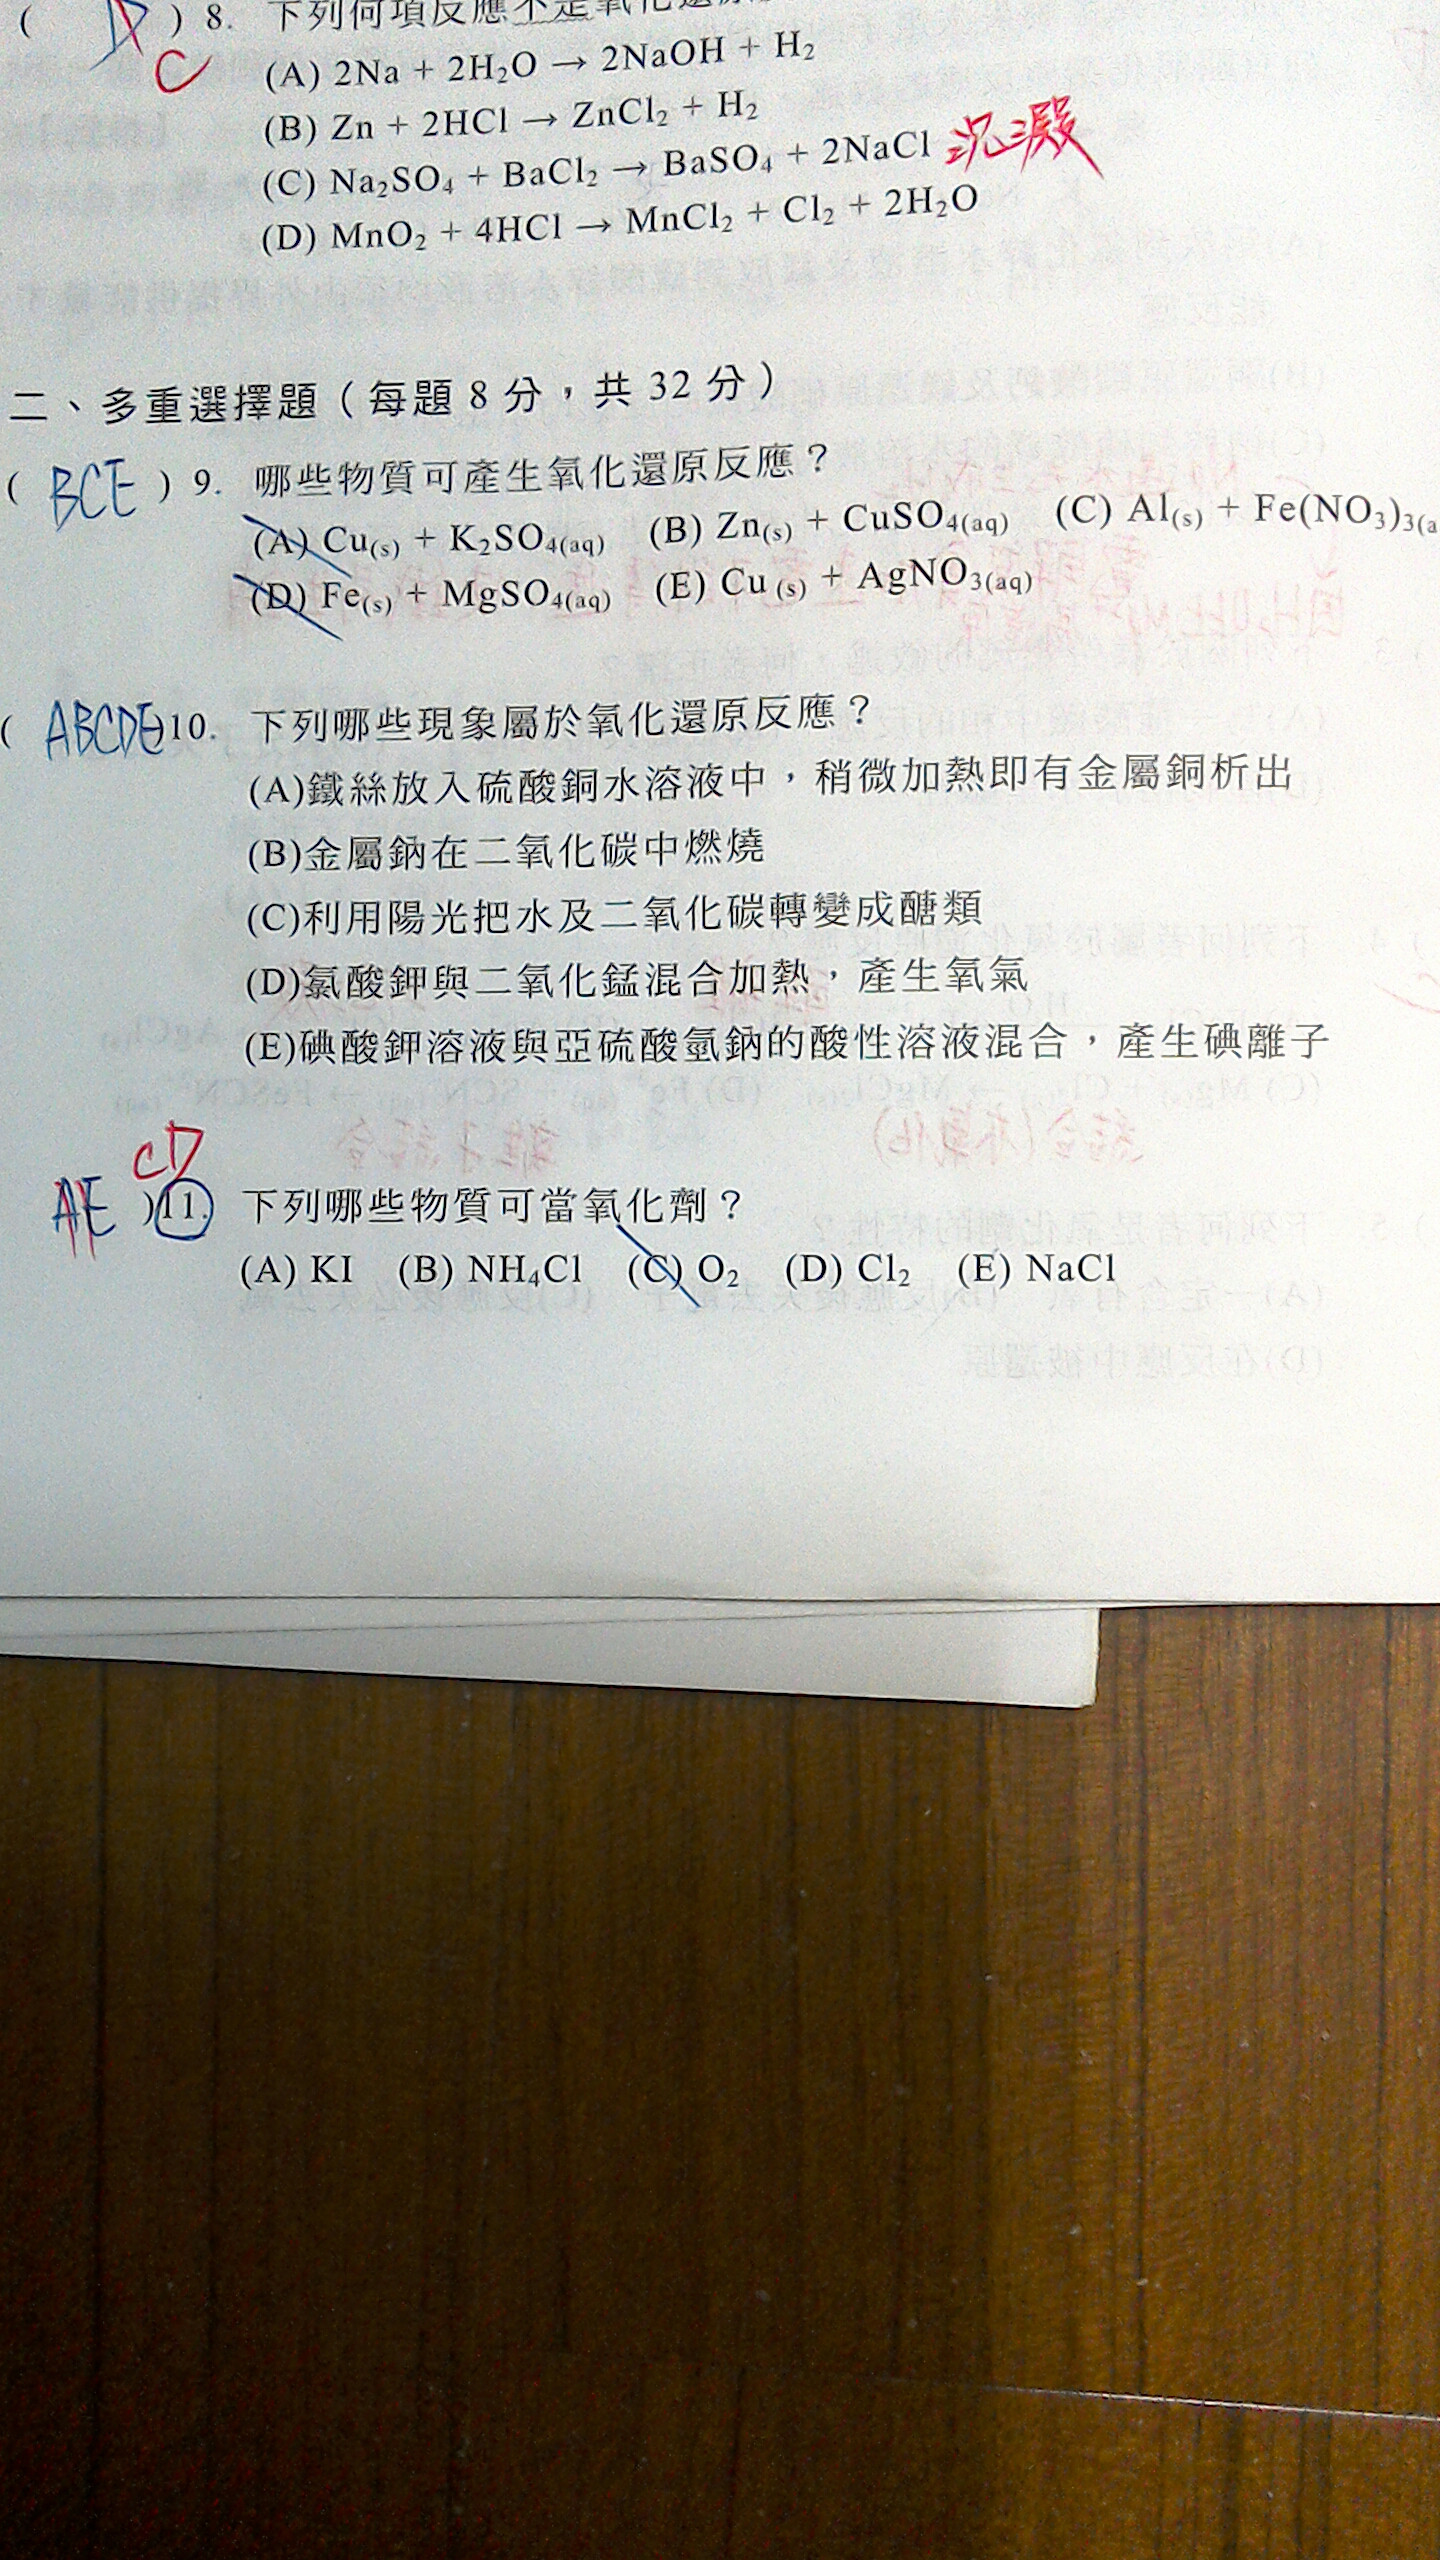 ( D ) 8. 下列何項反應不是氧化還原
C
(A) 2Na + 2H₂O → 2NaOH + H₂
(B) Zn + 2HCl → ZnCl₂ + H₂
(C) Na₂SO₄ + BaCl₂ → BaSO₄ + 2NaCl 沉澱
(D) MnO₂ + 4HCl → MnCl₂ + Cl₂ + 2H₂O
二、多重選擇題（每題 8 分，共 32 分）
( BCE ) 9. 哪些物質可產生氧化還原反應？
(A) Cu(s) + K₂SO₄(aq) (B) Zn(s) + CuSO₄(aq) (C) Al(s) + Fe(NO₃)₃(a
(D) Fe(s) + MgSO₄(aq) (E) Cu (s) + AgNO₃(aq)
( ABCDE )10. 下列哪些現象屬於氧化還原反應？
(A)鐵絲放入硫酸銅水溶液中，稍微加熱即有金屬銅析出
(B)金屬鈉在二氧化碳中燃燒
(C)利用陽光把水及二氧化碳轉變成醣類
(D)氯酸鉀與二氧化錳混合加熱，產生氧氣
(E)碘酸鉀溶液與亞硫酸氫鈉的酸性溶液混合，產生碘離子
CD
AE )11. 下列哪些物質可當氧化劑？
(A) KI (B) NH₄Cl (C) O₂ (D) Cl₂ (E) NaCl